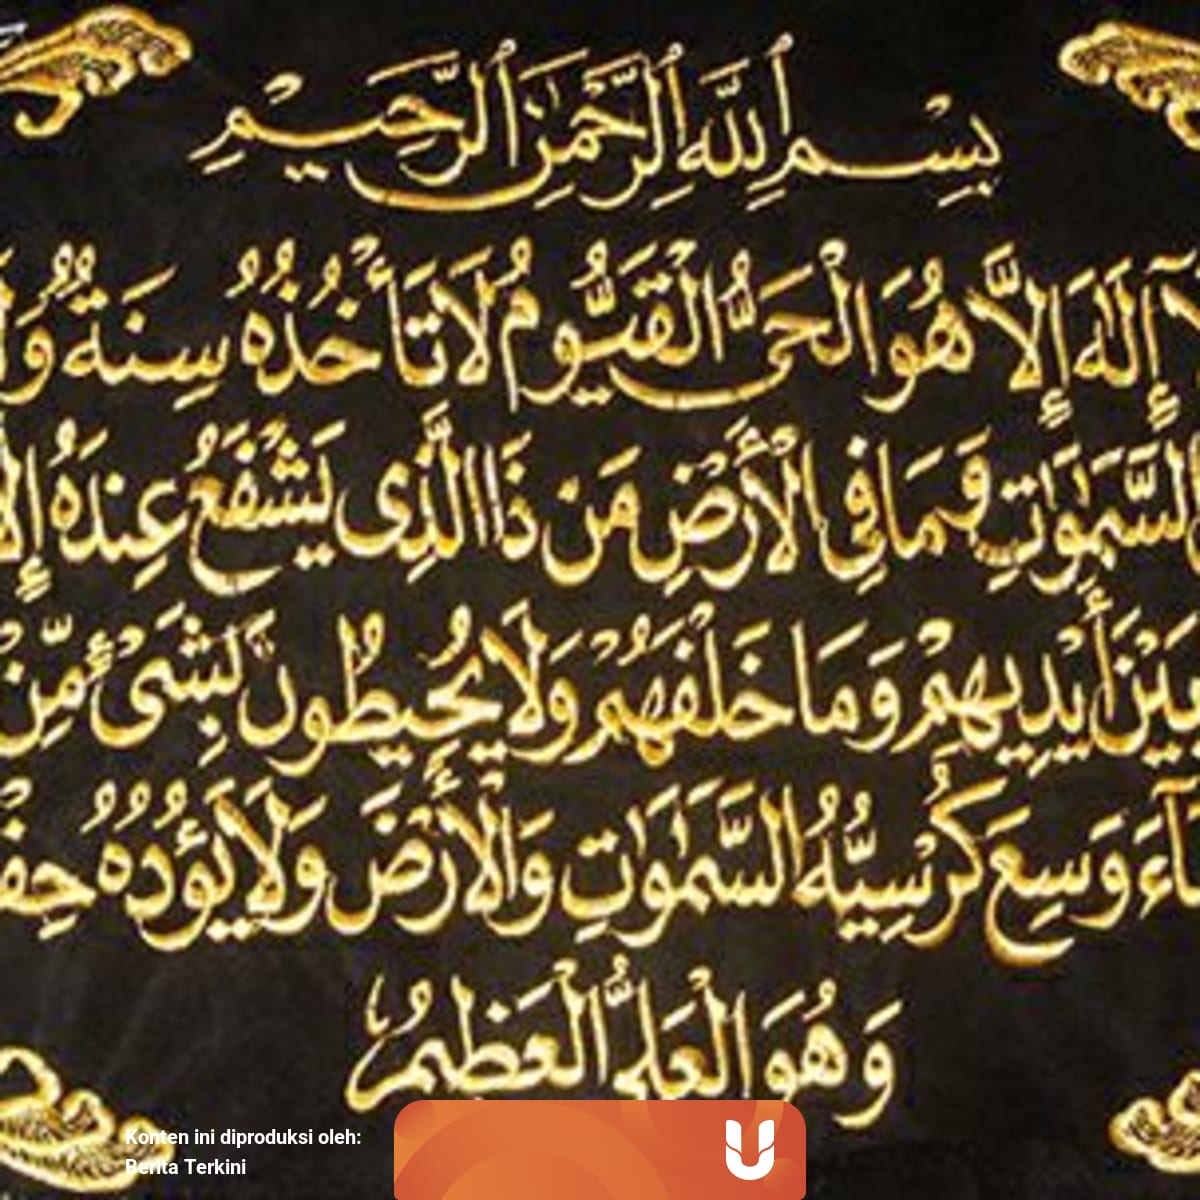 بِسْمِ اللَّهِ الرَّحْمٰنِ الرَّحِيمِ
إِلٰهَ إِلَّا هُوَ الْحَيُّ الْقَيُّومُ لَا تَأْخُذُهُ سِنَةٌ
السَّمٰوَاتِ وَمَا فِى الْأَرْضِ مَنْ ذَا الَّذِى يَشْفَعُ عِنْدَهُ
بَيْنَ أَيْدِيهِمْ وَمَا خَلْفَهُمْ وَلَا يُحِيطُونَ بِشَىْءٍ مِّنْ
وَسِعَ كُرْسِيُّهُ السَّمٰوَاتِ وَالْأَرْضَ وَلَا يَؤُدُهُ
وَهُوَ الْعَلِىُّ الْعَظِيمُ
Konten ini diproduksi oleh:
Berita Terkini